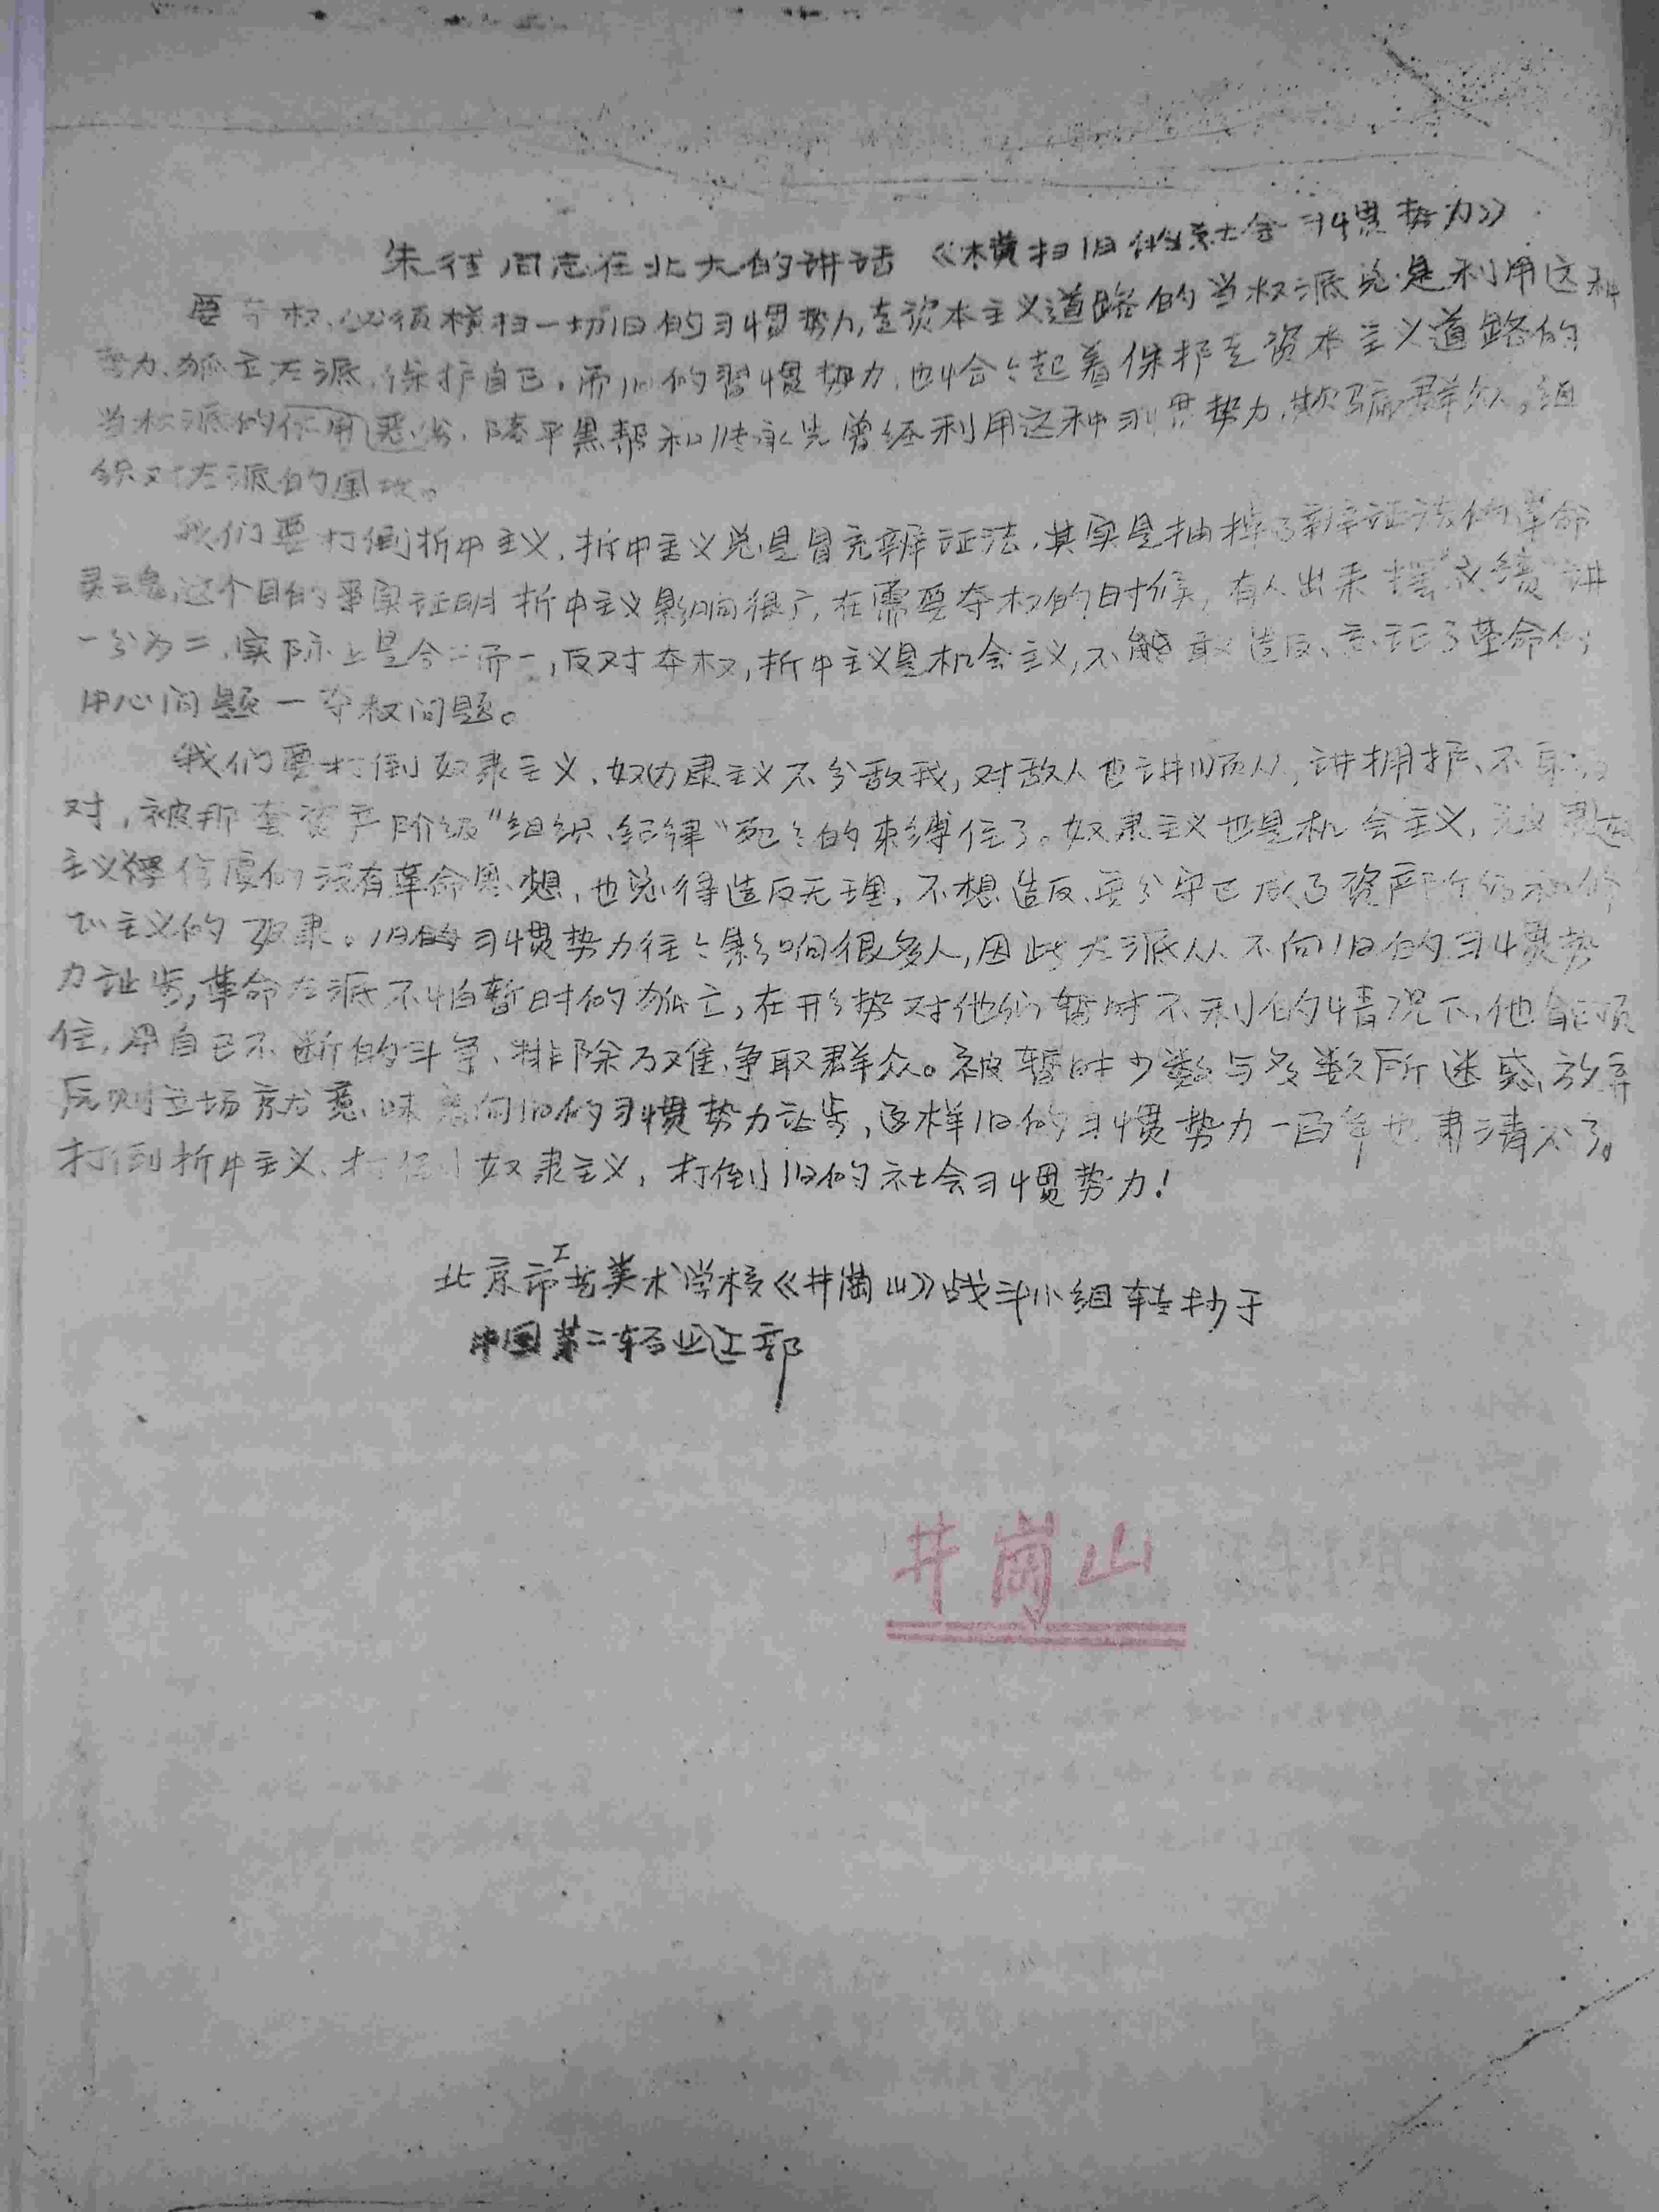 同志在北大的讲话 《横扫旧的社会习惯势力》
要夺权,必须横扫一切旧的习惯势力,走资本主义道路的当权派总是利用这种
势力,孤立左派,保护自己,而旧的習惯势力,也恰々起着保护走资本主义道路的
当权派的作用 陆平黑帮和张承先曾经利用这种习惯势力,欺骗群众,组
织对左派的围攻。
我们要打倒折中主义,折中主义总是冒充辨证法,其实是抽掉了辨证法的革命
灵魂,这个目的事实证明折中主义影响很广,在需要夺权的时候,有人出来摆“成绩”讲
一分为二,实际上是合二而一,反对夺权,折中主义是机会主义,不能 造反、忘记了革命的
中心问题一夺权问题。
我们要打倒奴隶主义,奴隶主义不分敌我,对敌人也讲顺从,讲拥护、不
对,被那套资产阶级“组织、纪律“死々的束缚住了。奴隶主义也是机会主义,
主义 没有革命思想,也觉得造反无理,不想造反,安分守己成了资产阶级和修
正主义的奴隶。旧的习惯势力往々影响很多人,因此左派从不向旧的习惯势
力让步,革命左派不怕暂时的孤立,在形势对他们暂时不利的情况下,他能顶
住,用自己不断的斗争、排除万难,争取群众。被暂时少数与多数所迷惑,放弃
原则立场就意味着向旧的习惯势力让步,这样旧的习惯势力一百年也肃清不了。
打倒折中主义、打倒奴隶主义,打倒旧的社会习惯势力!
北京市工艺美术学校《井崗山》战斗小组转抄于
中国第二轻工业部
井崗山